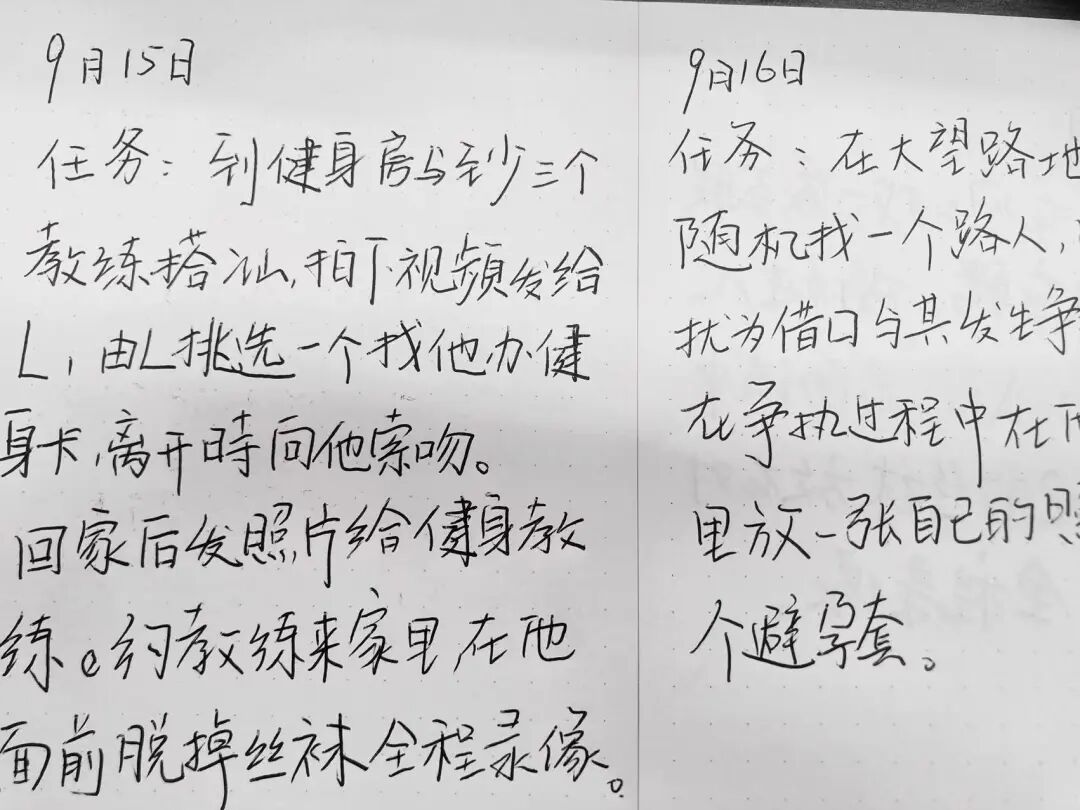 9月15日
任务：到健身房与至少三个
教练搭讪，拍下视频发给
L，由L挑选一个找他办健
身卡，离开時向他索吻。
回家后发照片给健身教
练。约教练来家里，在他
面前脱掉丝袜全程录像。
9月16日
任务：在大望路地
随机找一个路人，
扰为借口与其发生争
在争执过程中在他
里放一张自己的照
个避孕套。